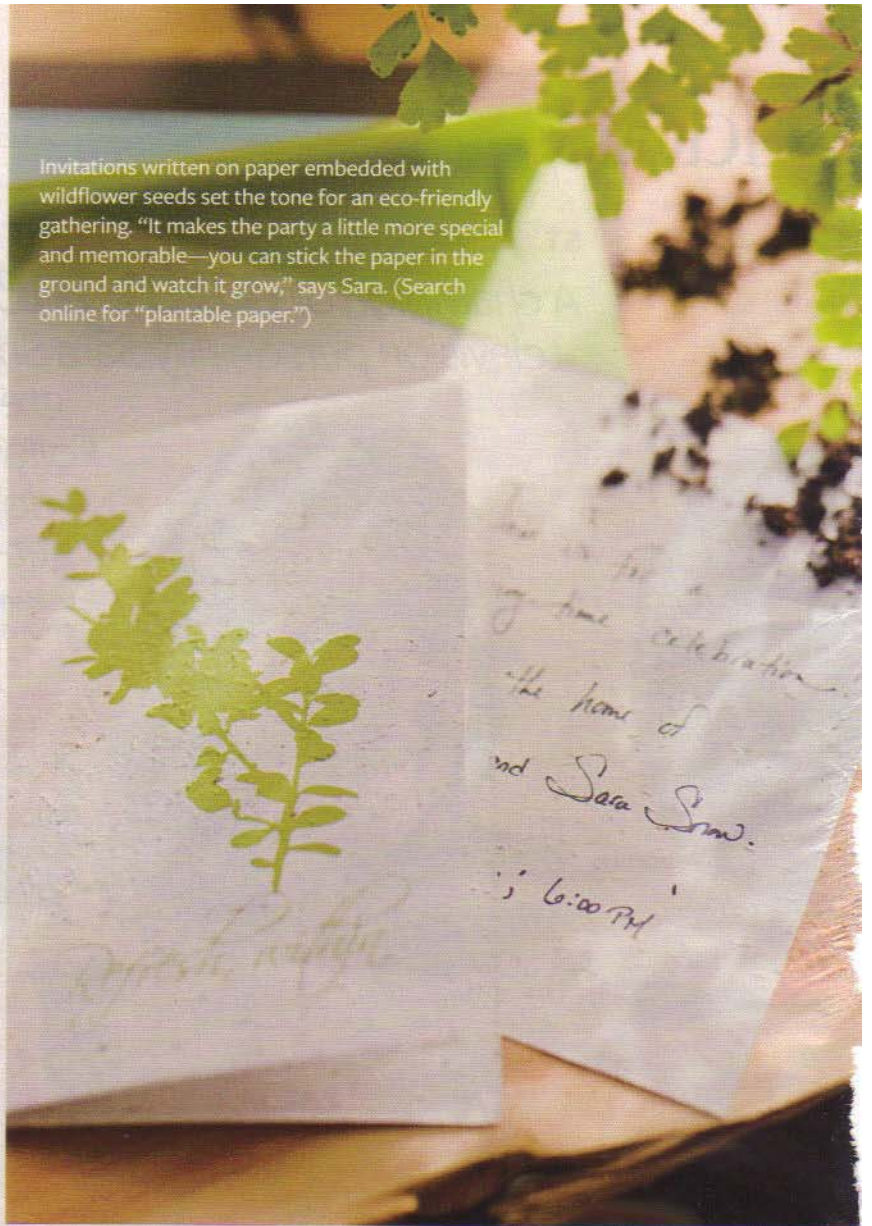 Invitations written on paper embedded with
wildflower seeds set the tone for an eco-friendly
gathering. “It makes the party a little more special
and memorable—you can stick the paper in the
ground and watch it grow,” says Sara. (Search
online for “plantable paper.”)
for a
time celebration
the home of
Sara Snow.
6:00 PM